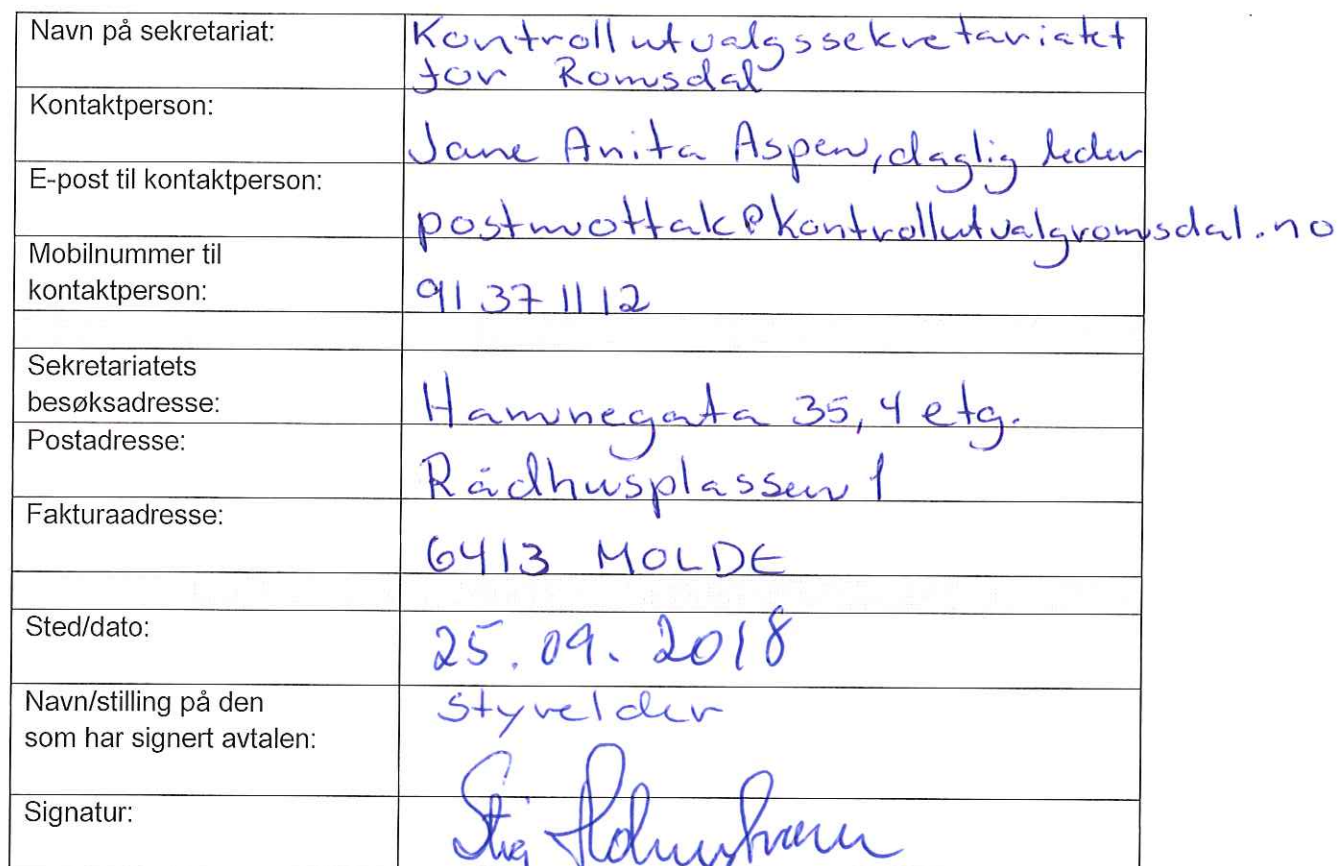 Navn på sekretariat:
Kontrollutvalgssekretariatet
for Romsdal
Kontaktperson:
Jane Anita Aspen, daglig leder
E-post til kontaktperson:
postmottak@kontrollutvalgromsdal.no
Mobilnummer til
kontaktperson:
91 37 11 12
Sekretariatets
besøksadresse:
Hamnegata 35, 4 etg.
Postadresse:
Rådhusplassen 1
Fakturaadresse:
6413 MOLDE
Sted/dato:
25.09.2018
Navn/stilling på den
som har signert avtalen:
styrelder
Signatur:
Stig